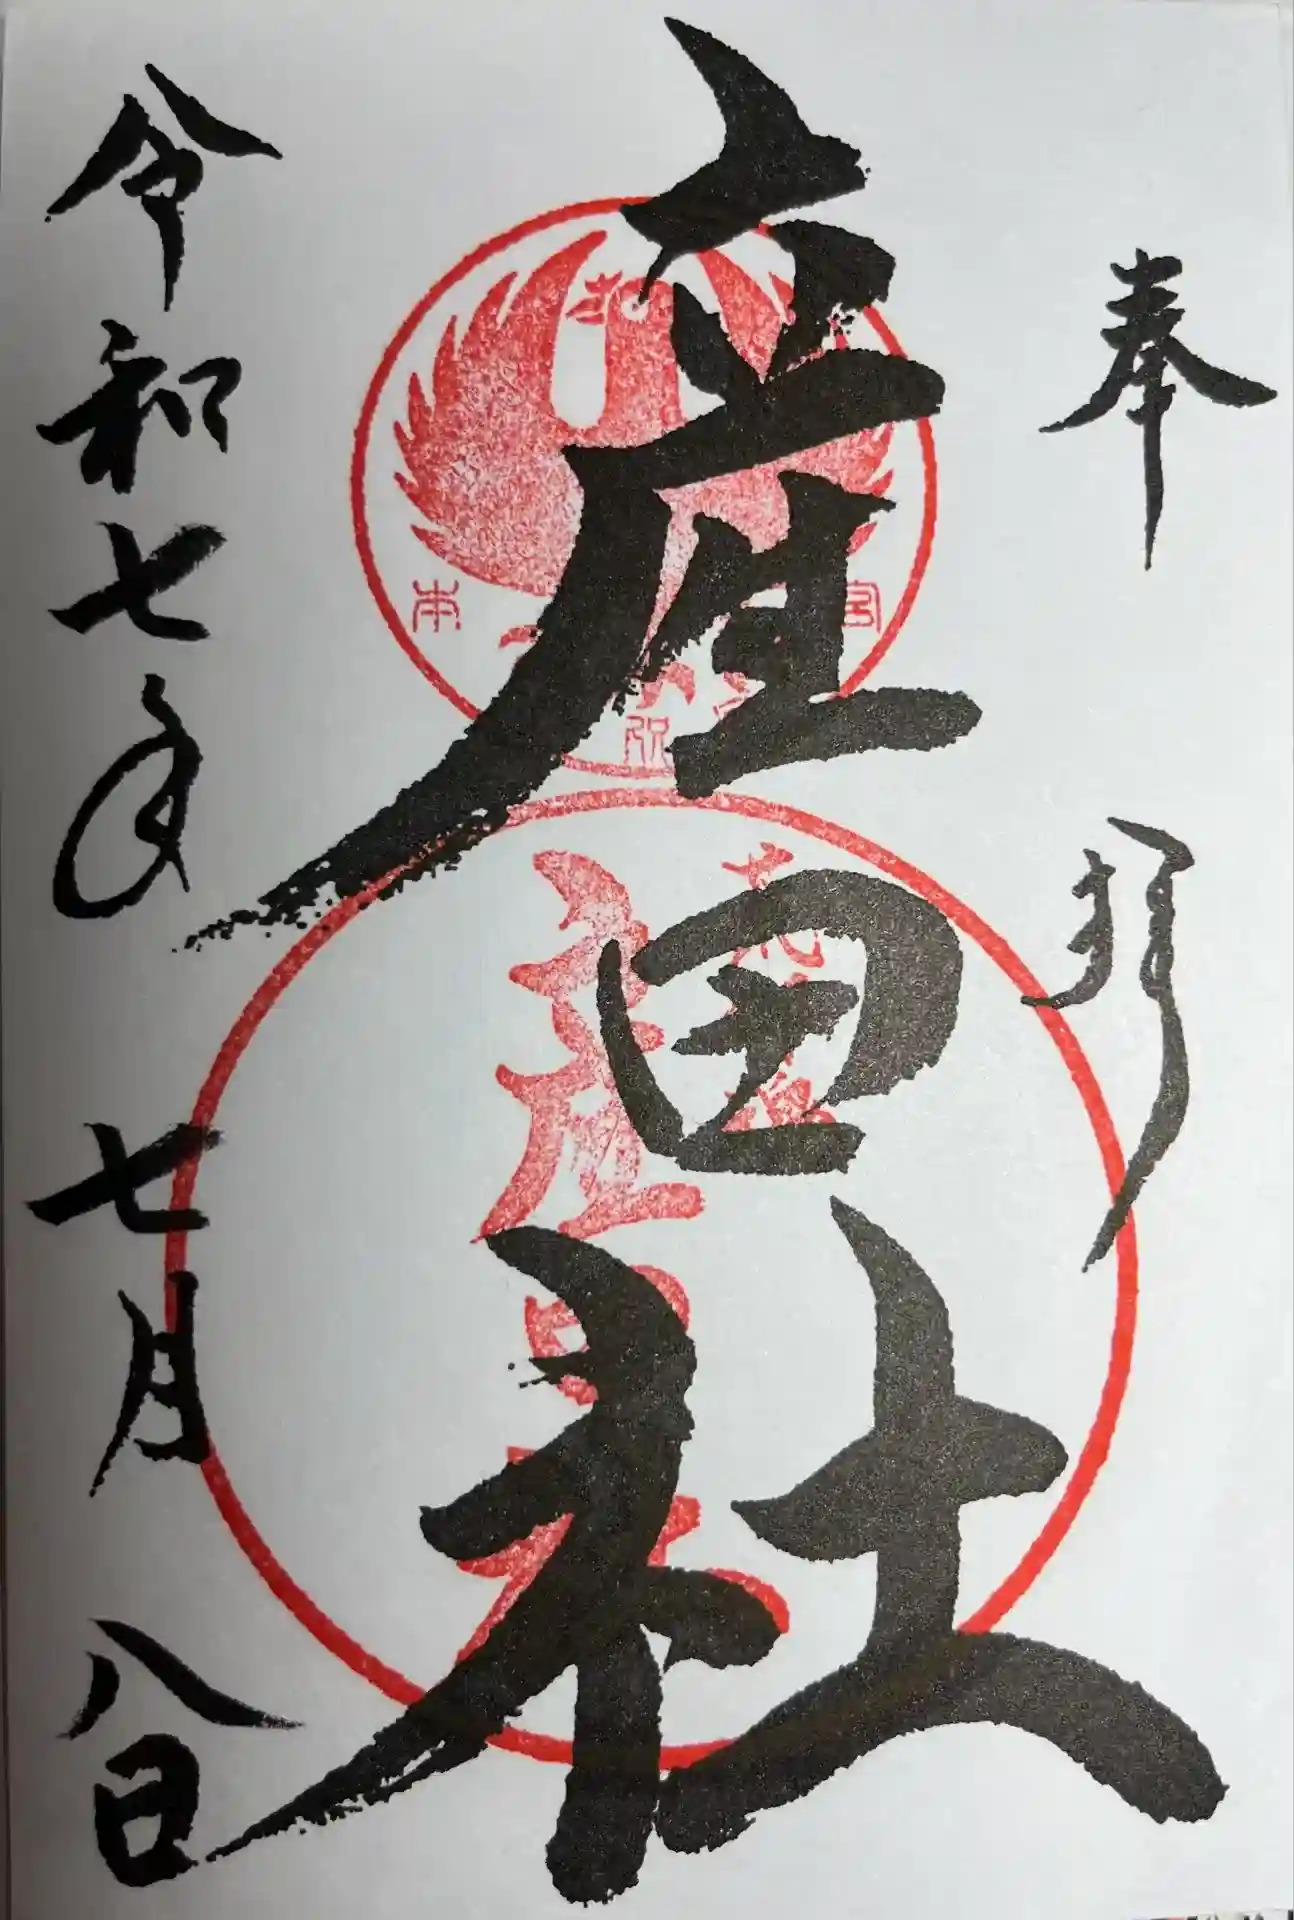 奉拝
産田社
令和七年七月八日